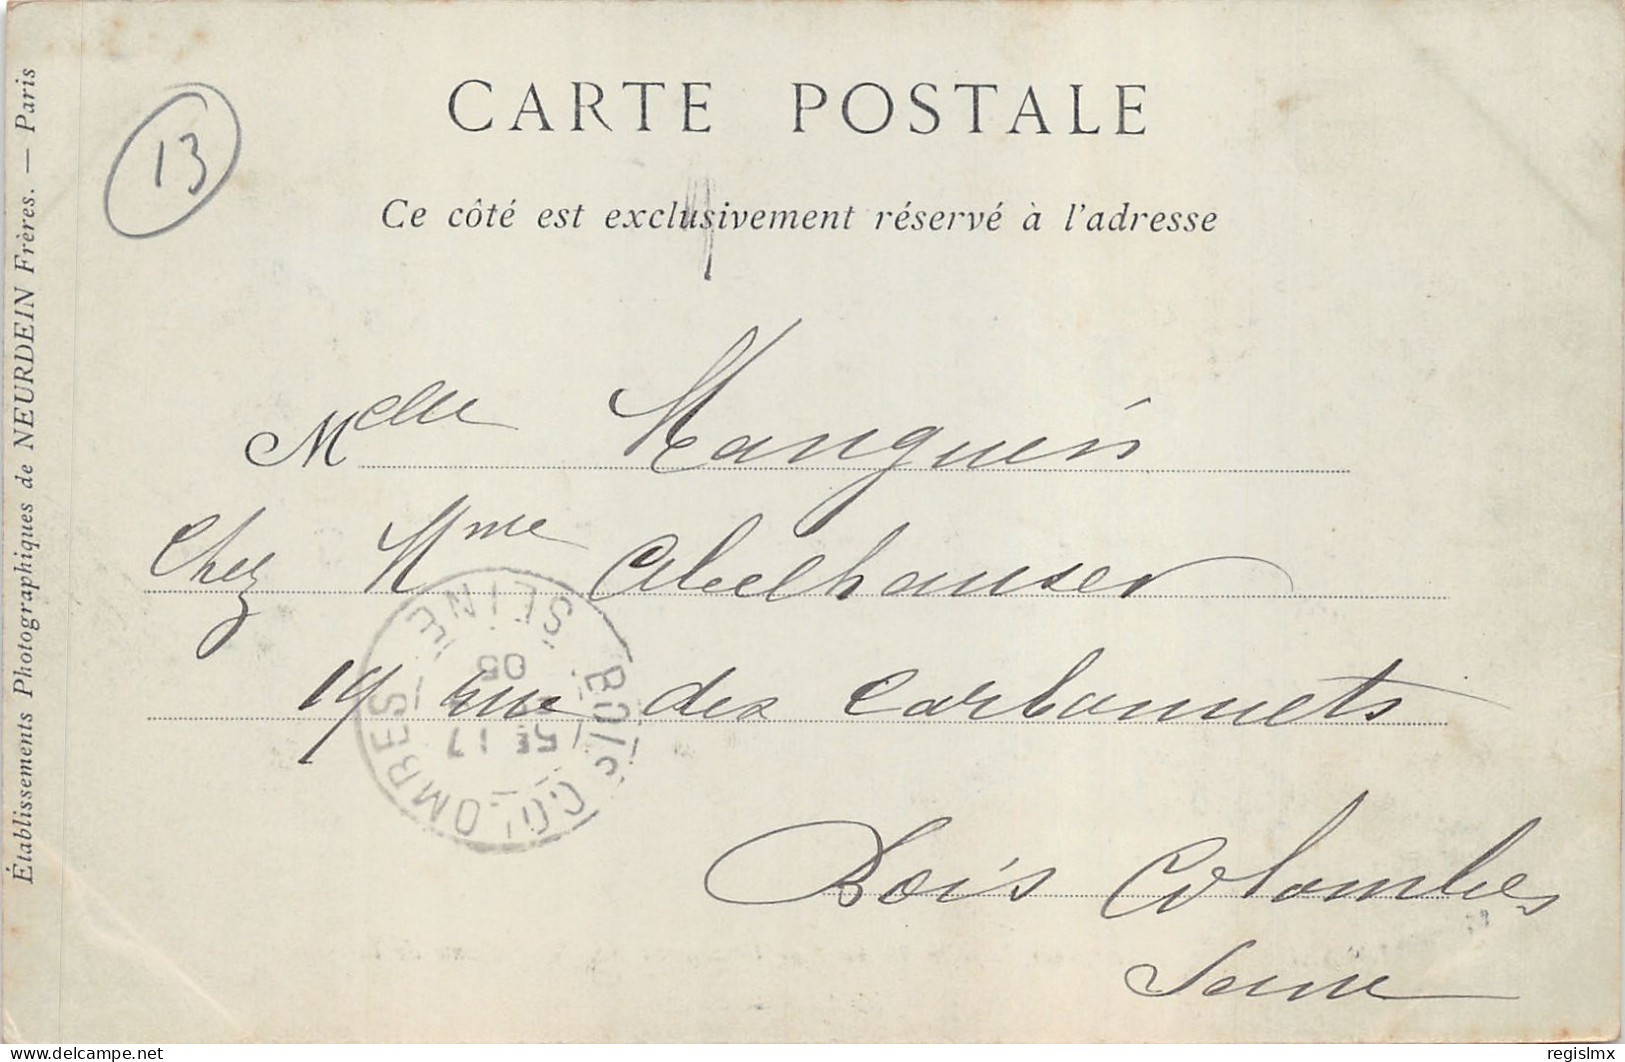 CARTE POSTALE
Ce côté est exclusivement réservé à l'adresse
13
Melle Manguin
Chez Mme Abelhauser
19 rue des Carbonnets
Bois Colombes
Seine
BOIS COLOMBES
SEINE
17
05
Établissements Photographiques de NEURDEIN Frères. — Paris
delcampe.net
regislmx